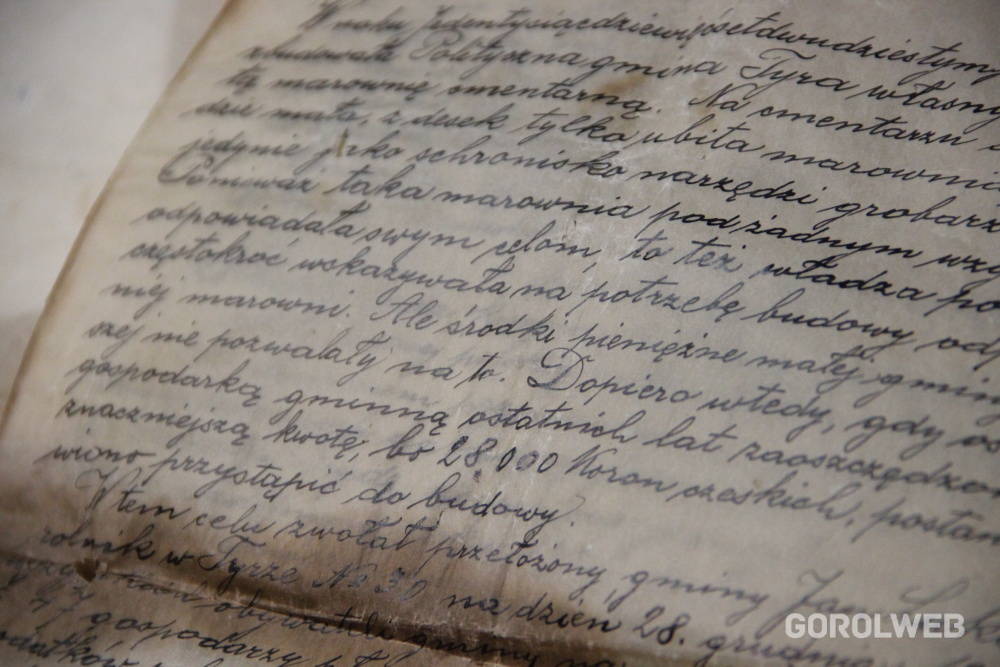 W roku Jedentysiącdziewięćsetdwudziestym
zbudowała Polityczna gmina Tyra własny
tę marownię cmentarną. Na cmentarzu
dziś mała, z desek tylko ubita marownia
jedynie jako schronisko narzędzi grobarz
Ponieważ taka marownia pod żadnym wzg
odpowiadała swym celom, to też władza po
częstokroć wskazywała na potrzebę budowy odp
niej marowni. Ale środki pieniężne małej gmin
szej nie pozwalały na to. Dopiero wtedy, gdy os
gospodarką gminną ostatnich lat zaoszczędzon
znaczniejszą kwotę, bo 28.000 Koron czeskich, postan
wiono przystąpić do budowy.
W tem celu zwołał przełożony gminy Jan
rolnik w Tyrze No 30 na dzień 28. grudnia
obywateli gminy na
47 gospodarzy
GOROLWEB